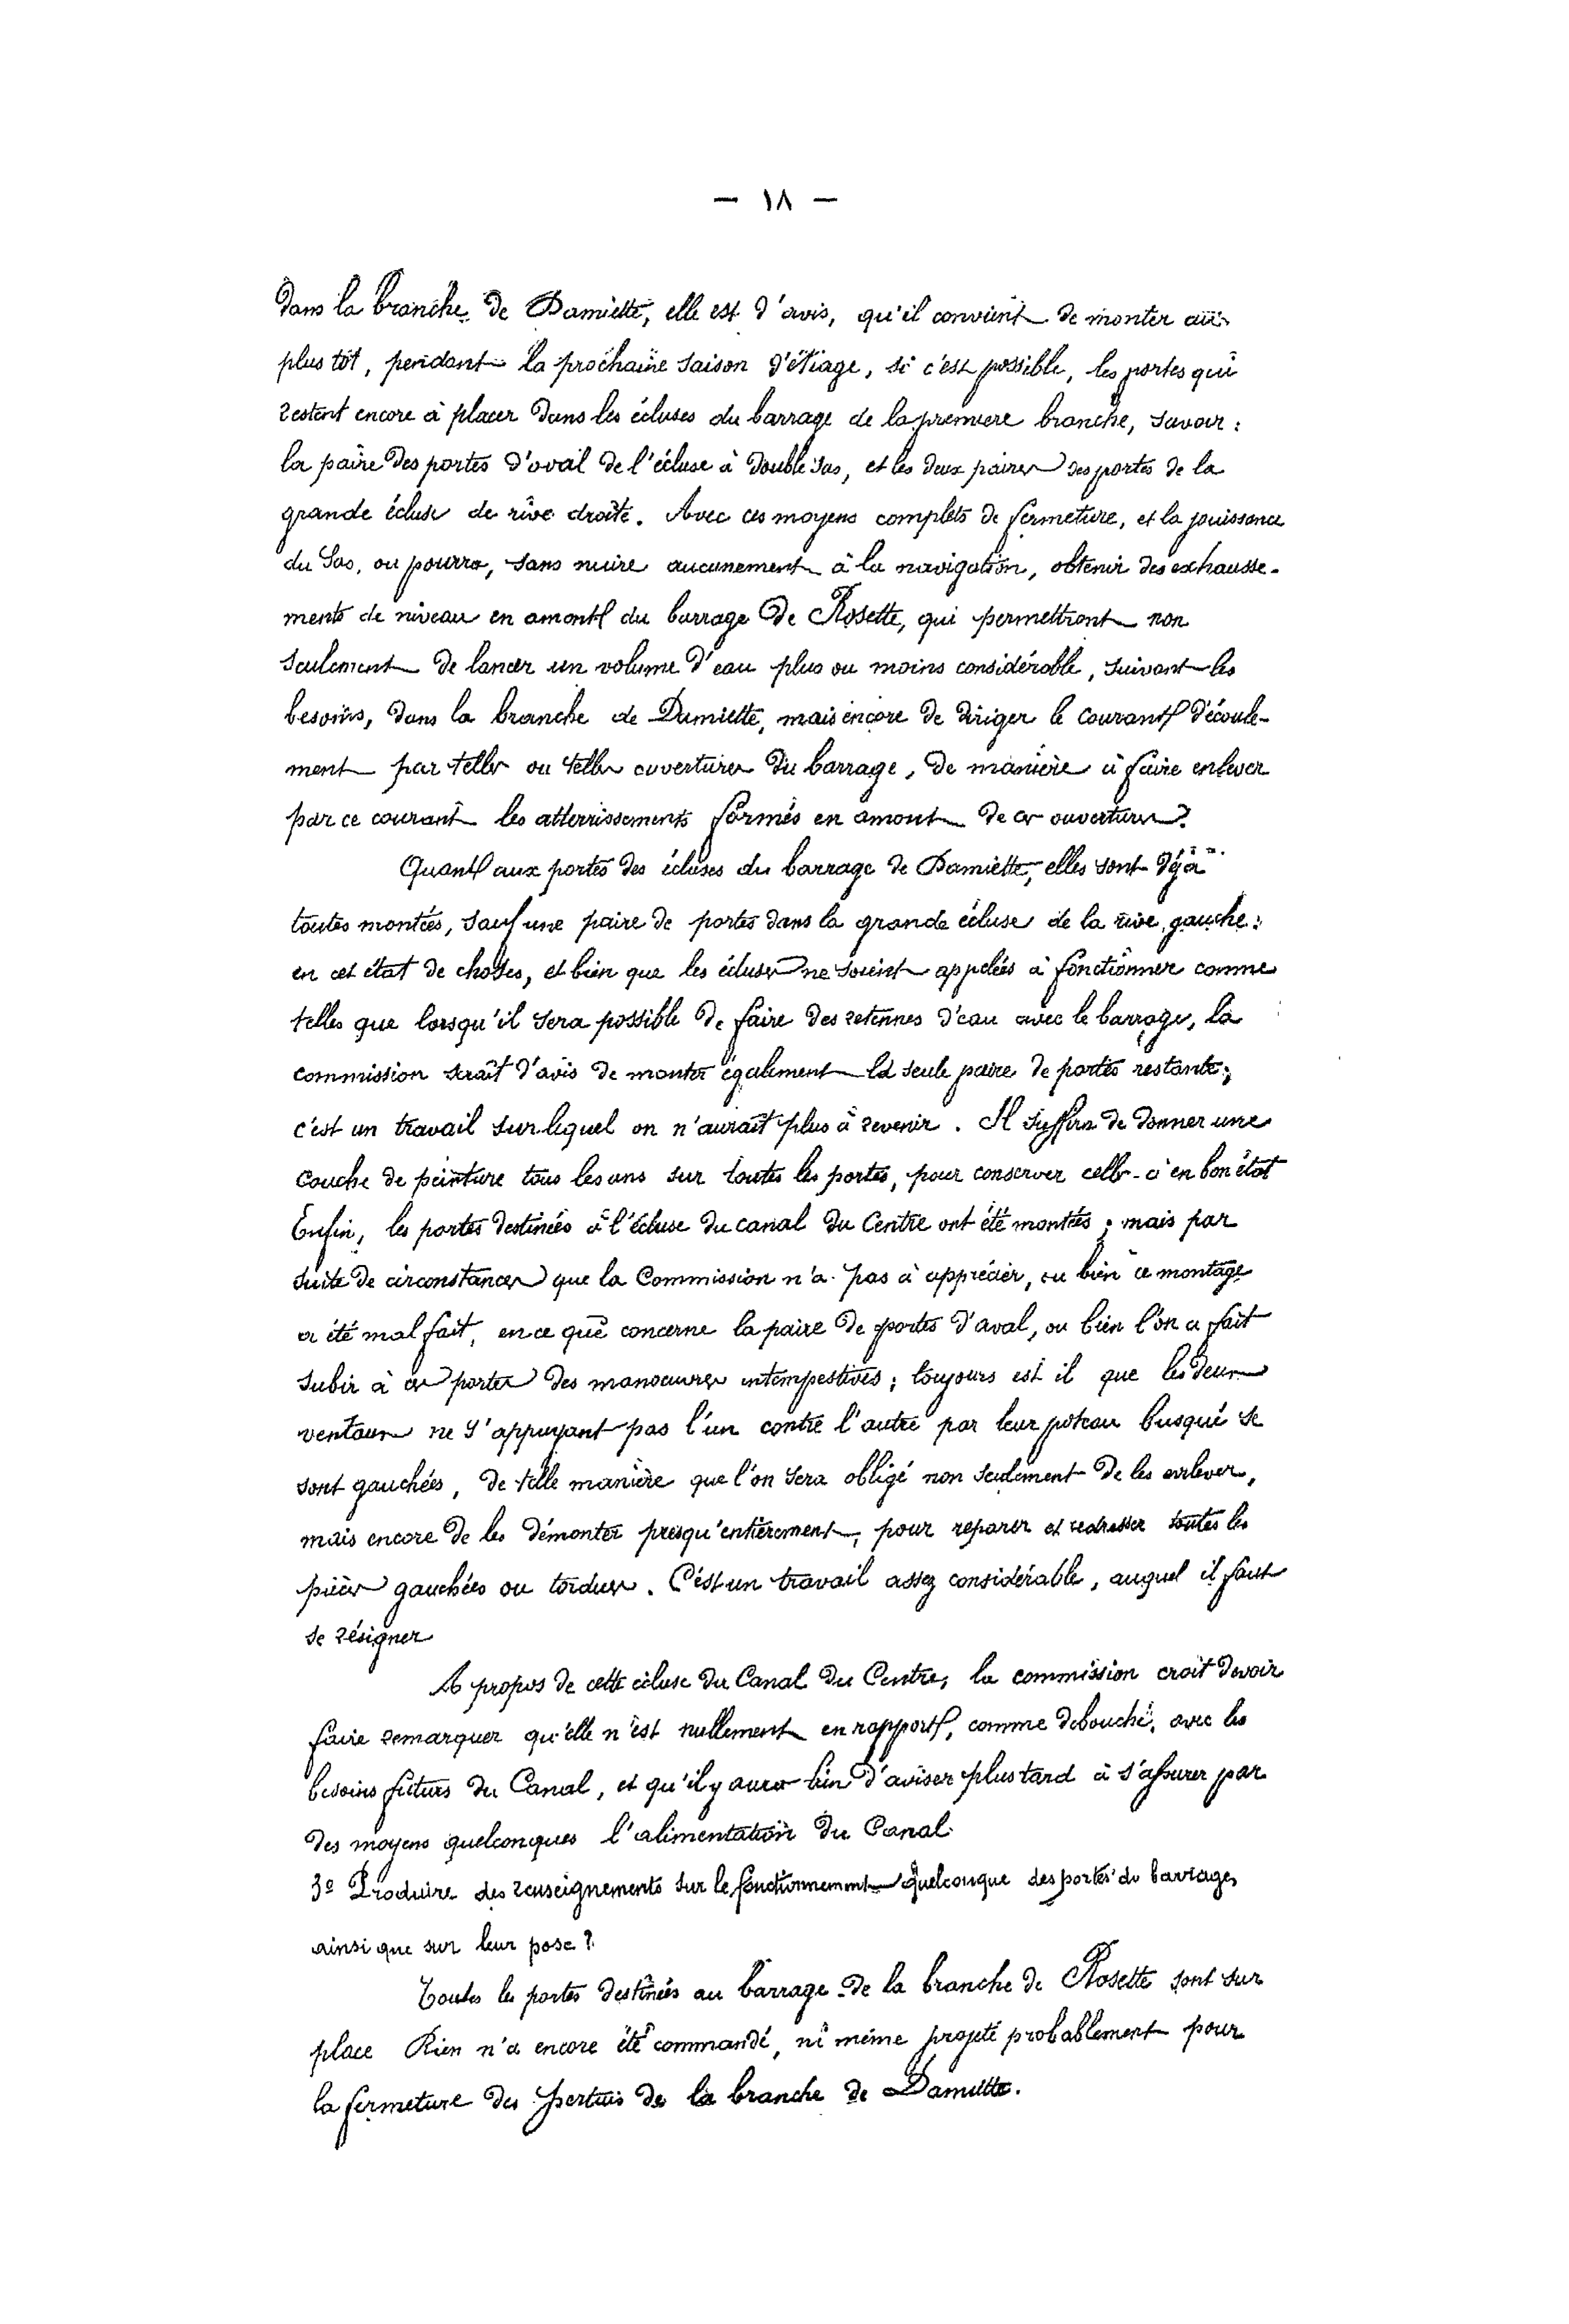 — ١٨ —
dans la branche de Damiette, elle est d'avis, qu'il convient de monter au
plus tôt, pendant la prochaine saison d'étiage, si c'est possible, les portes qui
restent encore à placer dans les écluses du barrage de la premiere branche, savoir :
la paire des portes d'aval de l'écluse à double sas, et les deux paires des portes de la
grande écluse de rive droite. Avec ces moyens complets de fermeture, et la jouissance
du Sas, on pourra, sans nuire aucunement à la navigation, obtenir des exhausse-
ments de niveau en amont du barrage de Rosette, qui permettront non
seulement de lancer un volume d'eau plus ou moins considérable, suivant les
besoins, dans la branche de Damiette, mais encore de diriger le courant d'écoule-
ment par telles ou telles ouvertures du barrage, de manière à faire enlever
par ce courant les atterrissements formés en amont de ces ouvertures ?
Quant aux portes des écluses du barrage de Damiette, elles sont déjà
toutes montées, sauf une paire de portes dans la grande écluse de la rive gauche :
en cet état de choses, et bien que les écluses ne soient appelées à fonctionner comme
telles que lorsqu'il sera possible de faire des retennes d'eau avec le barrage, la
commission serait d'avis de monter également la seule paire de portes restante ;
c'est un travail sur lequel on n'aurait plus à revenir. Il suffira de donner une
couche de peinture tous les ans sur toutes les portes, pour conserver celles-ci en bon état
Enfin, les portes destinées à l'écluse du canal du Centre ont été montées ; mais par
suite de circonstances que la Commission n'a pas à apprécier, ou bien ce montage
a été mal fait, en ce qui concerne la paire de portes d'aval, ou bien l'on a fait
subir à ces portes des manœuvres intempestives ; toujours est il que les deux
ventaux ne s'appuyant pas l'un contre l'autre par leur poteau busqué se
sont gauchées, de telle manière que l'on sera obligé non seulement de les enlever,
mais encore de les démonter presqu'entièrement, pour reparer et redresser toutes les
pièces gauchées ou tordues. C'est un travail assez considérable, auquel il faut
se résigner
A propos de cette écluse du Canal du Centre, la commission croit devoir
faire remarquer qu'elle n'est nullement en rapport, comme debouché, avec les
besoins futurs du Canal, et qu'il y aura lieu d'aviser plus tard à s'assurer par
des moyens quelconques l'alimentation du Canal.
3º Produire des renseignements sur le fonctionnement quelconque des portes du barrage,
ainsi que sur leur pose ?
Toutes les portes destinées au barrage de la branche de Rosette sont sur
place Rien n'a encore été commandé, ni même projeté probablement pour
la fermeture des pertuis de la branche de Damiette.